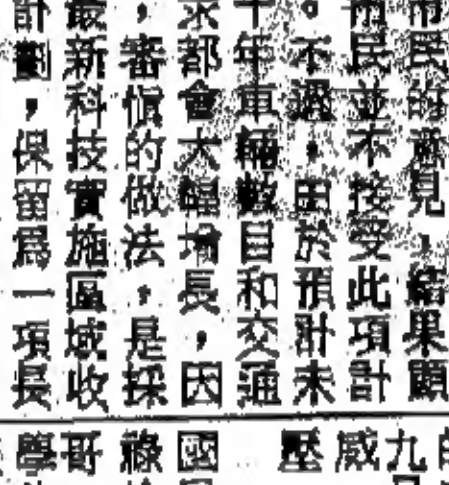 市民的意見，結果顯
民並不接受此項計
。不過，由於預計未
十年車輛數目和交通
求都會大幅增長，因
，審慎的做法，是採
最新科技實施區域收
計劃，保留爲一項長
九
威
壓
國
祿
哥
學